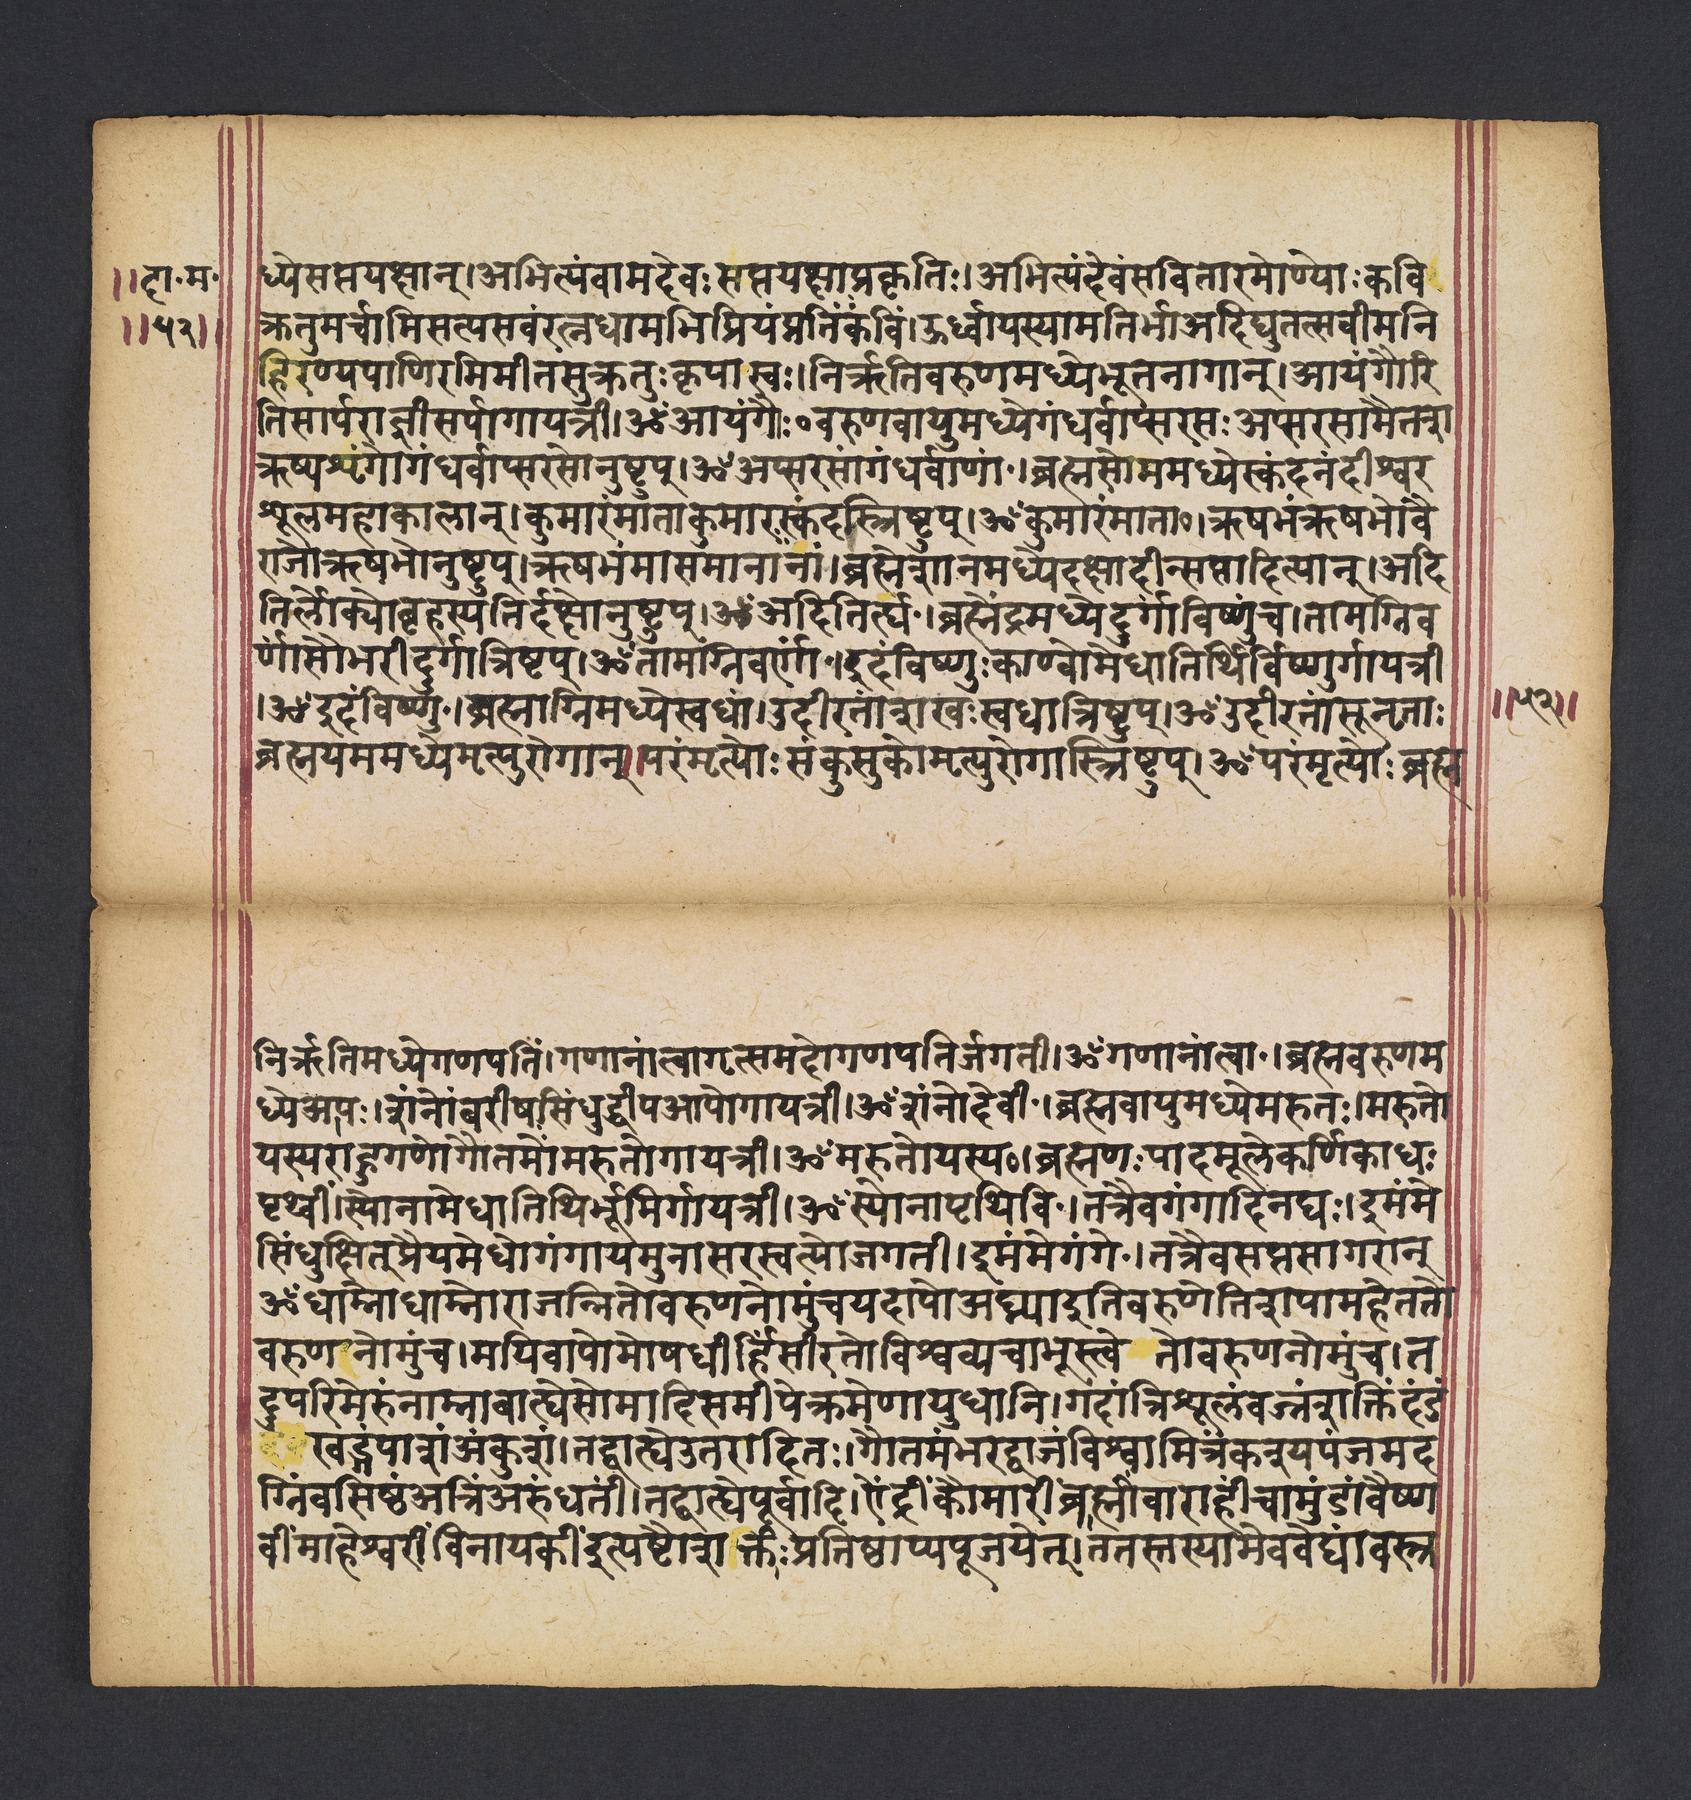 ॥दा॰म॰
॥५२॥
ध्येसप्तयक्षान्।अभित्यंवामदेवः सप्तयक्षाप्रकृतिः।अभित्यंदेवंसवितारमोण्योः कवि
क्रतुमर्चामिसत्यसवंरत्नधामभिप्रियंमतिंकविं।ऊर्ध्वायस्यामतिर्भाअदिद्युतत्सवीमनि
हिरण्यपाणिरमिमीतसुक्रतुः कृपास्वः।निर्ऋतिवरुणमध्येभूतनागान्।आयंगौरि
तिसार्पराज्ञीसर्पागायत्री।ॐआयंगौः॰वरुणवायुमध्येगंधर्वाप्सरसः अप्सरसामैतशा
ऋष्यशृंगोगंधर्वाप्सरसोनुष्टुप्।ॐअप्सरसांगंधर्वाणां॰।ब्रह्मसोममध्येस्कंदनंदीश्वर
शूलमहाकालान्।कुमारंमाताकुमारस्कंदस्त्रिष्टुप्।ॐकुमारंमाता॰।ऋषभंऋषभोवै
राजोऋषभोनुष्टुप्।ऋषभंमासमानानां।ब्रह्मेशानमध्येदक्षादीन्सप्तादित्यान्।अदि
तिर्लौक्योबृहस्पतिर्दक्षोनुष्टुप्।ॐअदितिर्ह्य॰।ब्रह्मेंद्रमध्येदुर्गाविष्णुंच।तामग्निव
र्णांसौभरीदुर्गात्रिष्टुप्।ॐतामग्निवर्णां॰।इदंविष्णुः काण्वोमेधातिथिर्विष्णुर्गायत्री
।ॐइदंविष्णु॰।ब्रह्माग्निमध्येस्वधां।उदीरतांशंखः स्वधात्रिष्टुप्।ॐउदीरतांसूनृताः
ब्रह्मयममध्येमृत्युरोगान्॥परंमृत्योः संकुसुकोमृत्युरोगास्त्रिष्टुप्।ॐपरंमृत्योः ब्रह्म
॥५२॥
निर्ऋतिमध्येगणपतिं।गणानांत्वागृत्समदोगणपतिर्जगती।ॐगणानांत्वा॰।ब्रह्मवरुणम
ध्येअपः।शंनोंबरीषसिंधुद्वीपआपोगायत्री।ॐशंनोदेवी॰।ब्रह्मवायुमध्येमरुतः।मरुतो
यस्यराहुगणोगौतमोंमरुतोगायत्री।ॐमरुतोयस्य॰।ब्रह्मणः पादमूलेकर्णिकाधः
पृथ्वीं।स्योनामेधातिथिर्भूमिर्गायत्री।ॐस्योनापृथिवि॰।तत्रैवगंगादिनद्यः।इमंमे
सिंधुक्षित्प्रैयमेधोगंगायमुनासरस्वत्योजगती।इमंमेगंगे॰।तत्रैवसप्तसागरान्
ॐधाम्नोधाम्नोराजन्नितोवरुणनोमुंचयदापोअघ्न्याइतिवरुणेतिशपामहेततो
वरुण नोमुंच।मयिवापोमोषधीर्हिंसीरतोविश्वव्यचाभूस्त्वे तोवरुणनोमुंच।त
दुपरिमेरुंनाम्नाबाह्येसोमादिसमीपेक्रमेणायुधानि।गदांत्रिशूलंवज्रंशक्तिंदंडं
खड्गंपाशंअंकुशं।तद्बाह्येउत्तरादितः।गौतमंभरद्वाजंविश्वामित्रंकश्यपंजमद
ग्निंवसिष्ठंअत्रिंअरुंधतीं।तद्बाह्येपूर्वादि।ऐंद्रींकौमारींब्राह्मींवाराहींचामुंडांवैष्ण
वींमाहेश्वरींविनायकींइत्यष्टौश क्तीः प्रतिष्ठाप्यपूजयेत्।ततस्तस्यामेववेद्यांवस्त्र